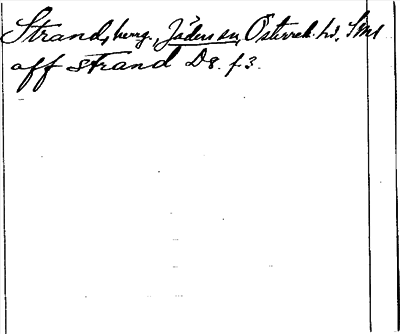 Strand, herrg., Jäders sn, Österrek. hd. Sml
off strand D8. f3.